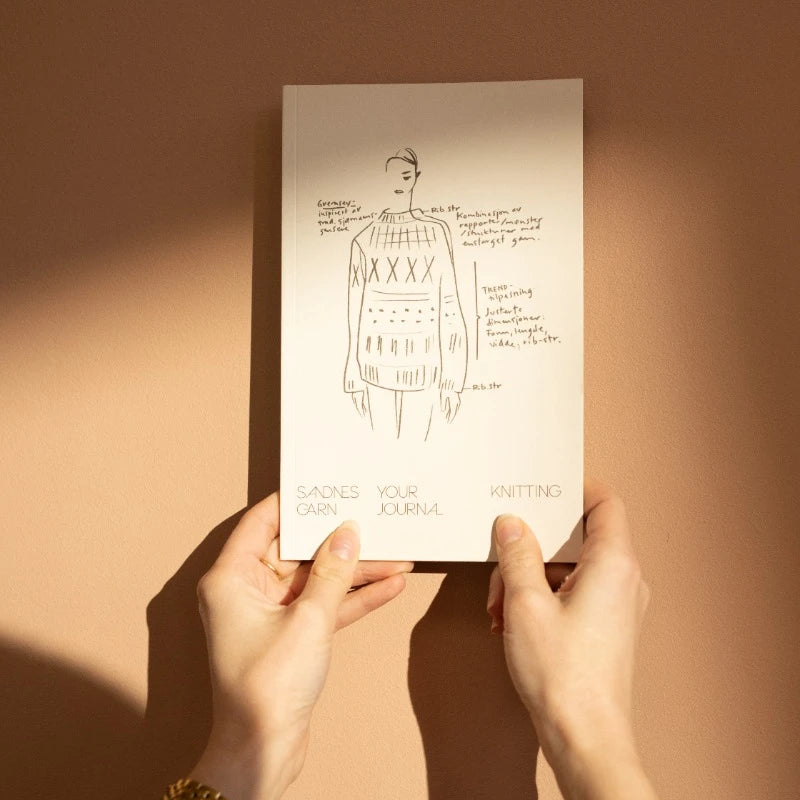 Genser:
inspirert av
trad. sjømanns-
gensere
Rib.str
Kombinasjon av
rapporter/mønster
/strukturer med
ensfarget garn.
TREND-
tilpasning
Justerte
dimensjoner:
Form, lengde,
vidde, rib-str.
Rib.str
SANDNES
GARN
YOUR
JOURNAL
KNITTING